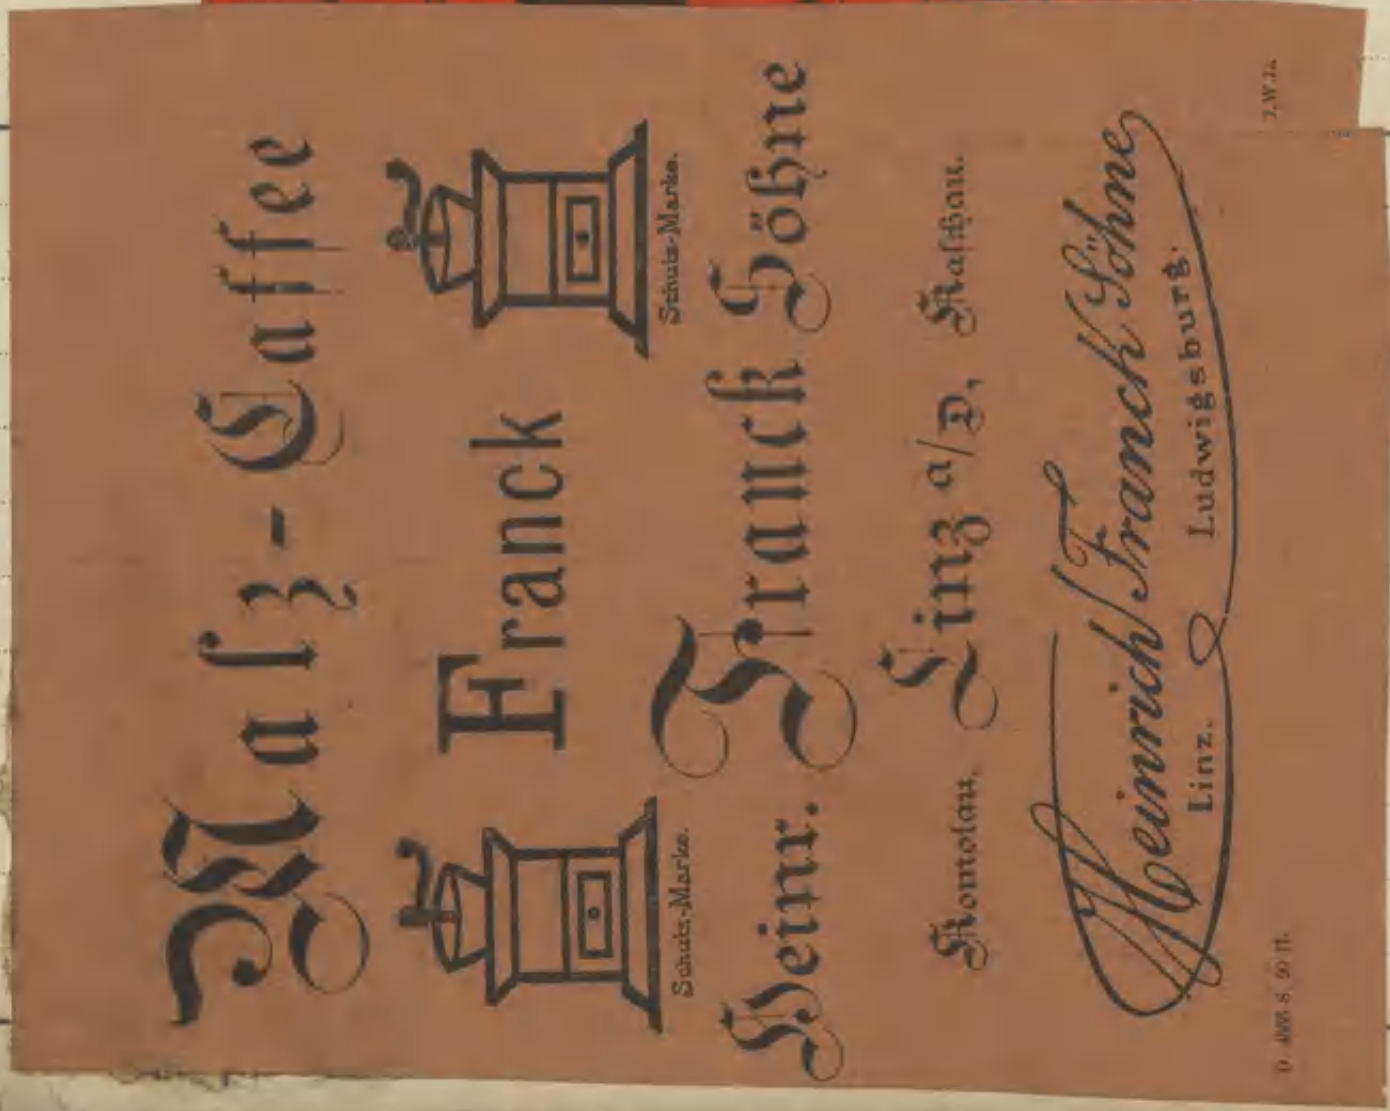 Malz-Caffee
Franck
Schutz-Marke.
Schutz-Marke.
Heinr. Franck Söhne
Komotau, Linz a/D, Kaschau.
Heinrich Franck Söhne
Linz. Ludwigsburg.